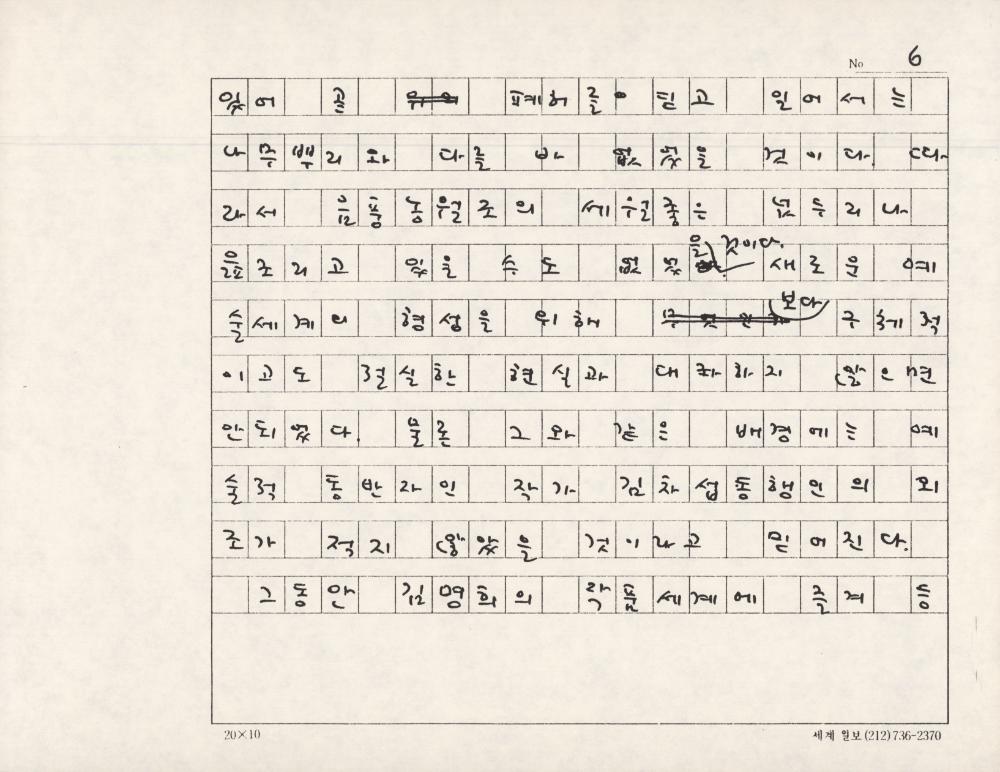 No 6
있어 골 폐허를 딛고 일어서는
나무뿌리와 다를 바 없었을 것이다. 따
라서 음풍농월조의 세월줄은 넋두리나
읊조리고 있을 수도 없었을 것이다. 새로운 예
술세계의 형성을 위해 보다 구체적
이고도 절실한 현실과 대좌하지 않으면
안되었다. 물론 그와 같은 배경에는 예
술적 동반자인 작가 김차섭동행인의 외
조가 적지 않았을 것이라고 믿어진다.
그동안 김명희의 작품세계에 즐겨 등
20×10
세계 월보 (212) 736-2370